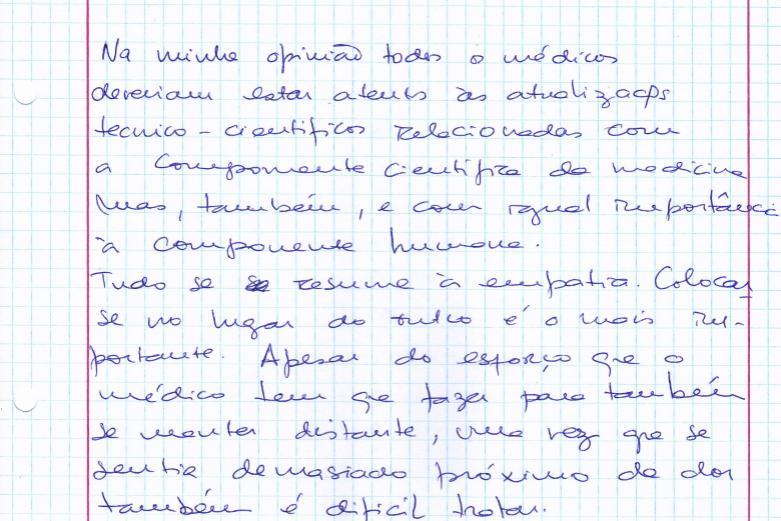 Na minha opinião todos o médicos
deveriam estar atentos às atualizações
tecnico-cientificos relacionadas com
a componente científica da medicina
mas, também, e com igual importância
à componente humana.
Tudo se resume à empatia. Colocar
se no lugar do outro é o mais im-
portante. Apesar do esforço que o
médico tem que fazer para também
se manter distante, uma vez que se
sentir demasiado próximo da dor
também é dificil tratar.